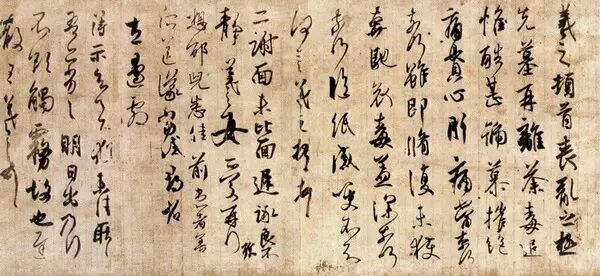 羲之頓首喪亂之極
先墓再離荼毒追
惟酷甚號慕摧絕
痛貫心肝痛當奈何
奈何雖即脩復未獲
奔馳哀毒益深奈何
奈何臨紙感哽不知
何言羲之頓首頓首
二謝面未比面遲詠良
靜羲之女愛再拜
想邰兒悉佳前患者善
左邊劇
得示知足下猶未佳耿耿
吾亦劣劣明日出乃行
不欲觸霧故也遲
散王羲之頓首